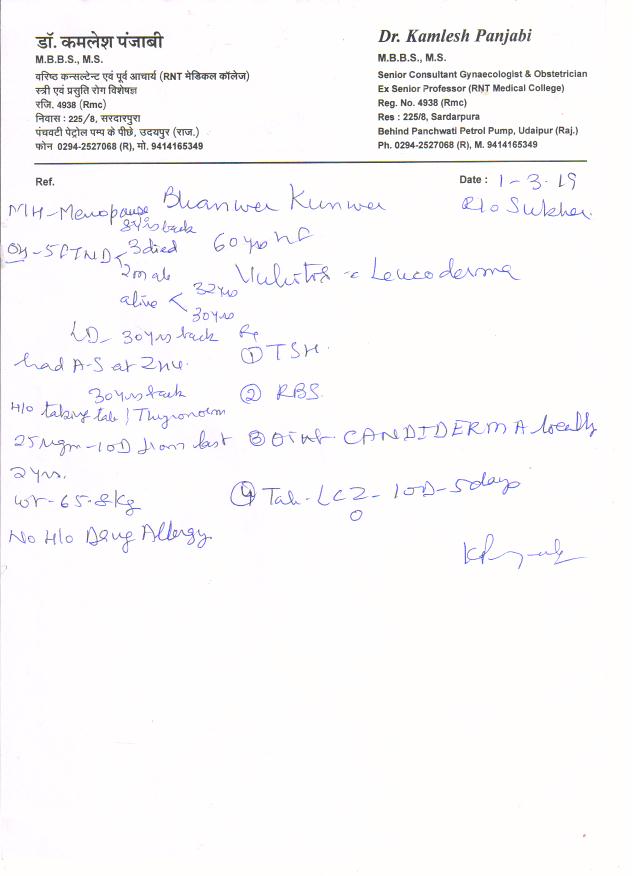 डॉ. कमलेश पंजाबी
M.B.B.S., M.S.
वरिष्ठ कन्सल्टेन्ट एवं पूर्व आचार्य (RNT मेडिकल कॉलेज)
स्त्री एवं प्रसुति रोग विशेषज्ञ
रजि. 4938 (Rmc)
निवास : 225/8, सरदारपुरा
पंचवटी पेट्रोल पम्प के पीछे, उदयपुर (राज.)
फोन 0294-2527068 (R), मो. 9414165349
Dr. Kamlesh Panjabi
M.B.B.S., M.S.
Senior Consultant Gynaecologist & Obstetrician
Ex Senior Professor (RNT Medical College)
Reg. No. 4938 (Rmc)
Res : 225/8, Sardarpura
Behind Panchwati Petrol Pump, Udaipur (Raj.)
Ph. 0294-2527068 (R), M. 9414165349
Ref.
Date : 1-3-19
Bhanwer Kunwer
R/o Sukher
60yrs
MH-Menopause
8yrs back
OH-5FTND
3 died
2 male
alive < 32yrs
30yrs
LD- 30yrs back
had A-S at
30yrs back
H/o taking tab / Thyronorm
25 mgm-10D from last
2yrs.
wt-65.8kg
No H/o Drug Allergy
c Leucoderma
① TSH
② RBS
③ Oint. CANDIDERMA locally
④ Tab-LCZ-10D-5days